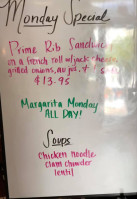 Monday Special
Prime Rib Sandwich
on a french roll w/ jack cheese
grilled onions, au jus, +
$13.95
Margarita Monday
ALL DAY!
Soups
chicken noodle
clam chowder
lentil